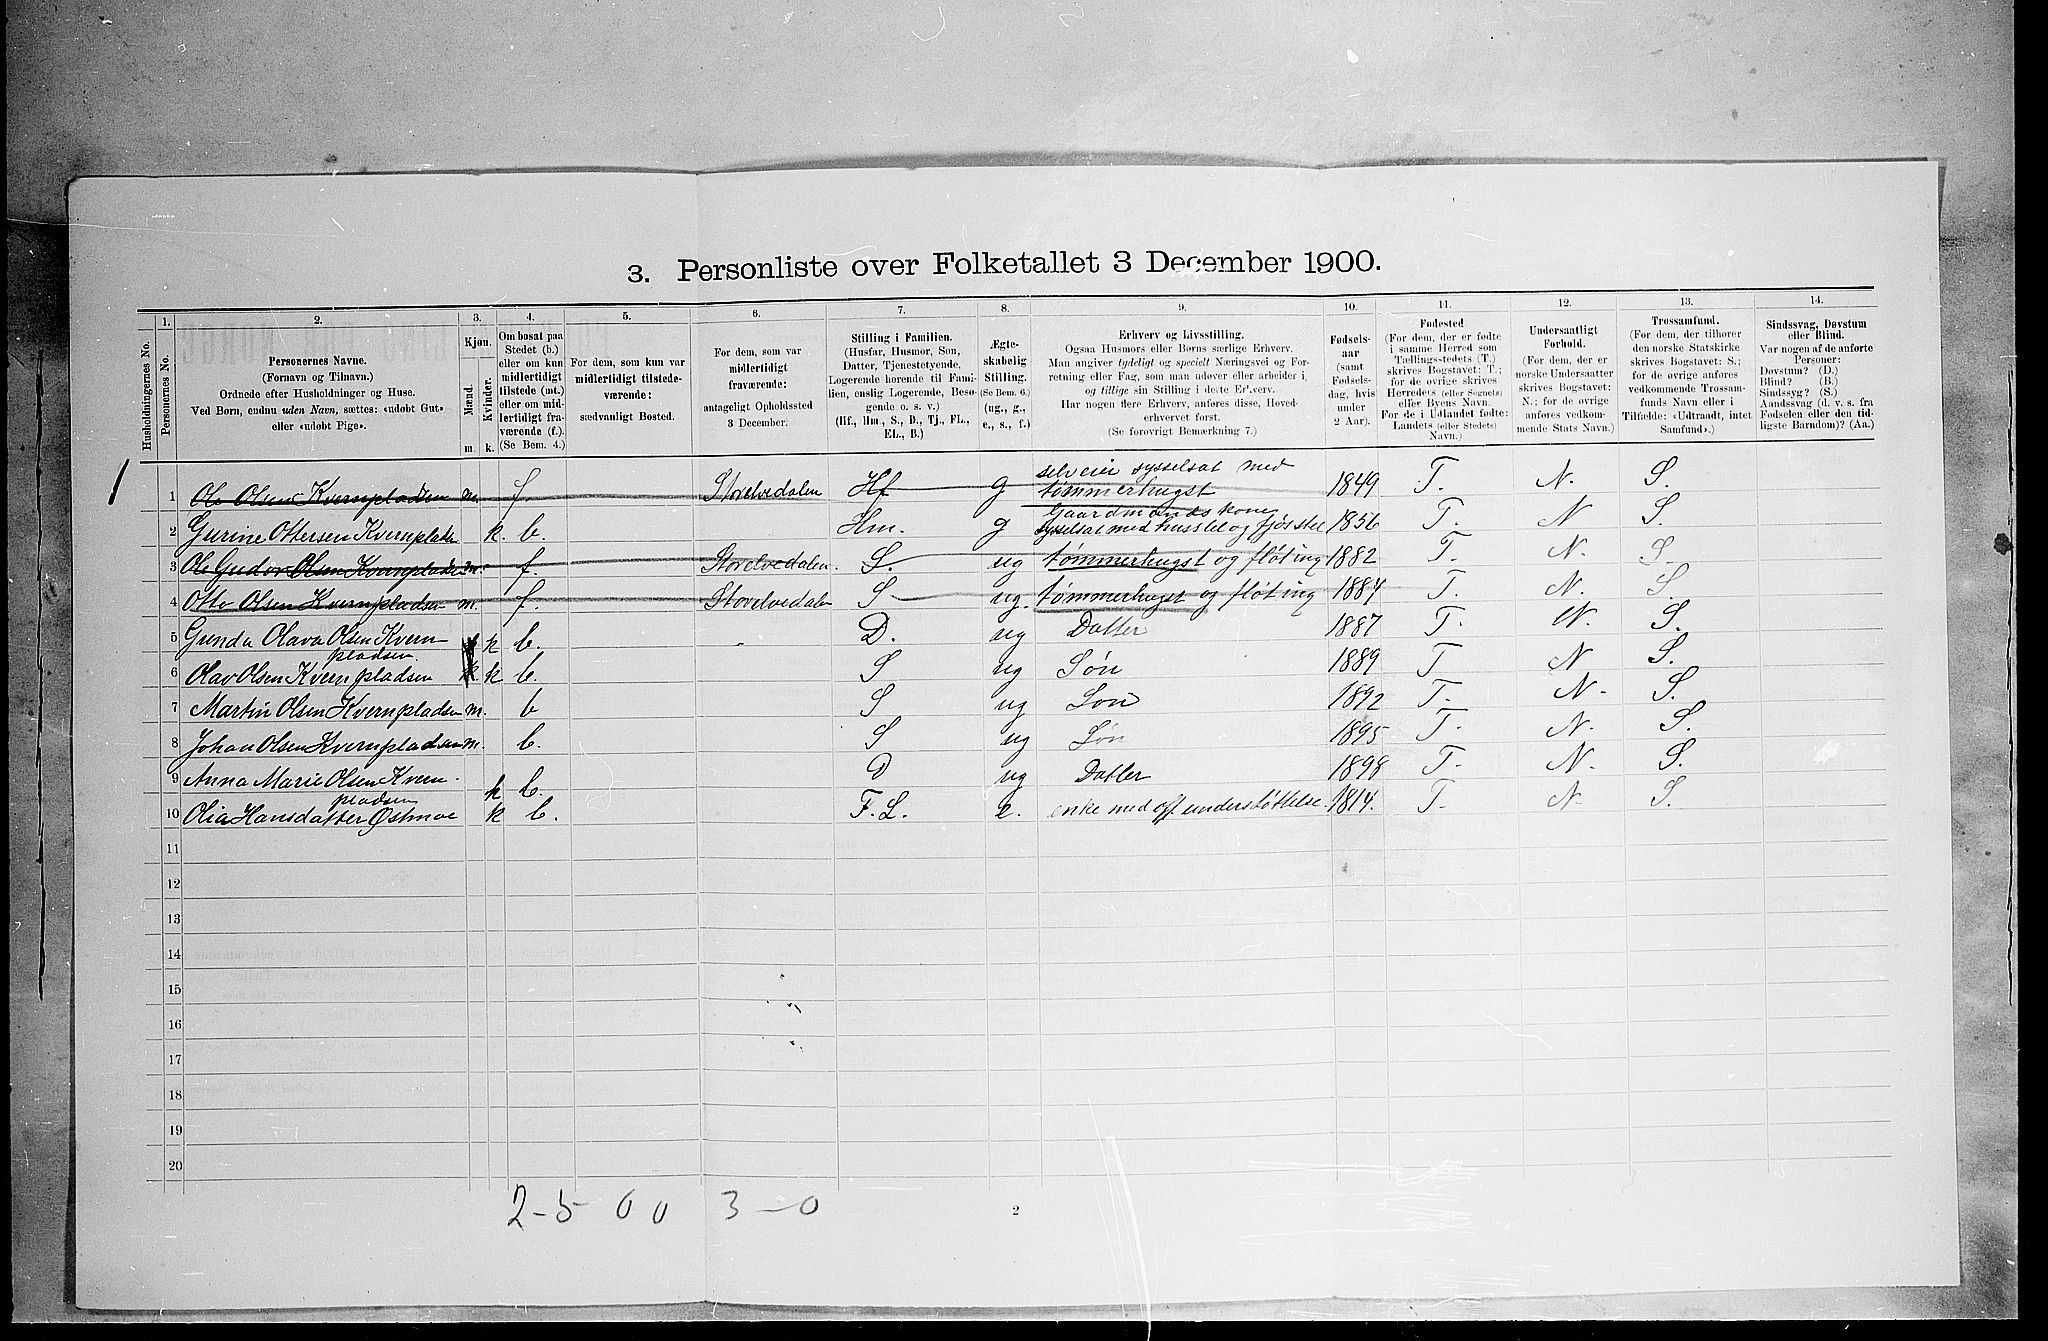 3. Personliste over Folketallet 3 December 1900.
1. 2. 3. 4. 5. 6. 7. 8. 9. 10. 11. 12. 13. 14.
Husholdningernes No.
Personernes No.
Personernes Navne.
(Fornavn og Tilnavn.)
Ordnede efter Husholdninger og Huse.
Ved Børn, endnu uden Navn, sættes: «udøbt Gut»
eller «udøbt Pige».
Kjøn.
Mænd.
Kvinder.
m. k.
Om bosat paa
Stedet (b.)
eller om kun
midlertidigt
tilstede (mt.)
eller om mid-
lertidigt fra-
værende (f.)
(Se Bem. 4.)
For dem, som kun var
midlertidigt tilstede-
værende:
sædvanligt Bosted.
For dem, som var
midlertidigt
fraværende:
antageligt Opholdssted
3 December.
Stilling i Familien.
(Husfar, Husmor, Søn,
Datter, Tjenestetyende,
Logerende hørende til Fami-
lien, enslig Logerende, Besø-
gende o. s. v.)
(Hf., Hm., S., D., Tj., FL.,
EL., B.)
Ægte-
skabelig
Stilling.
(Se Bem. 6.)
(ug., g.,
e., s., f.)
Erhverv og Livsstilling.
Ogsaa Husmors eller Børns særlige Erhverv.
Man angiver tydeligt og specielt Næringsvei og For-
retning eller Fag, som man udøver eller arbeider i,
og tillige sin Stilling i dette Erhverv.
Har nogen flere Erhverv, anføres disse, Hoved-
erhvervet først.
(Se forøvrigt Bemærkning 7.)
Fødsels-
aar
(samt
Fødsels-
dag, hvis
under
2 Aar).
Fødested
(For dem, der er fødte
i samme Herred som
Tællingsstedets (T.)
skrives Bogstavet: T.;
for de øvrige skrives
Herredets (eller Sognets)
eller Byens Navn.
For de i Udlandet fødte:
Landets (eller Stedets)
Navn.)
Undersaatligt
Forhold.
(For dem, der er
norske Undersaatter
skrives Bogstavet:
N.; for de øvrige
anføres vedkom-
mende Stats Navn.)
Trossamfund.
(For dem, der tilhører
den norske Statskirke
skrives Bogstavet: S.;
for de øvrige anføres
vedkommende Trossam-
funds Navn eller i
Tilfælde: «Udtraadt, intet
Samfund».)
Sindssvag, Døvstum
eller Blind.
Var nogen af de anførte
Personer:
Døvstum? (D.)
Blind? (B.)
Sindssyg? (S.)
Aandssvag (d. v. s. fra
Fødselen eller den tid-
ligste Barndom)? (Aa.)
selveier sysselsat med
1 1 Ole Olsen Kvernpladsen m. f. Storelvedalen Hf g tømmerhugst 1849 T. N. S.
Gaardmands kone
2 Gurine Ottersen Kvernpladsen k. b. Hm. g sysselsat med husstel og fjøsstel 1856 T. N S.
3 Ole Gudor Olsen Kvernpladsen m. f Storelvedalen. S. ug tømmerhugst og fløting 1882 T. N. S.
4 Otto Olsen Kvernpladsen m. f. Storelvedalen S ug. tømmerhugst og fløting 1884 T. N. S.
5 Gunda Olava Olsen Kvern- k b. D. ug Datter 1887 T. N. S.
pladsen.
6 Olav Olsen Kvernpladsen k b. S ug Søn 1889 T N S.
7 Martin Olsen Kvernpladsen m. b S ug Søn 1892 T. N. S.
8 Johan Olsen Kvernpladsen m. b. S ug Søn 1895 T. N. S.
9 Anna Marie Olsen Kvern- k b. D ug Datter 1898 T. N. S.
pladsen
10 Olia Hansdatter Østmoe k b. F. L. e. enke med off. understøttelse. 1814. T. N. S.
11
12
13
14
15
16
17
18
19
20
2-5 0 0 3-0
2